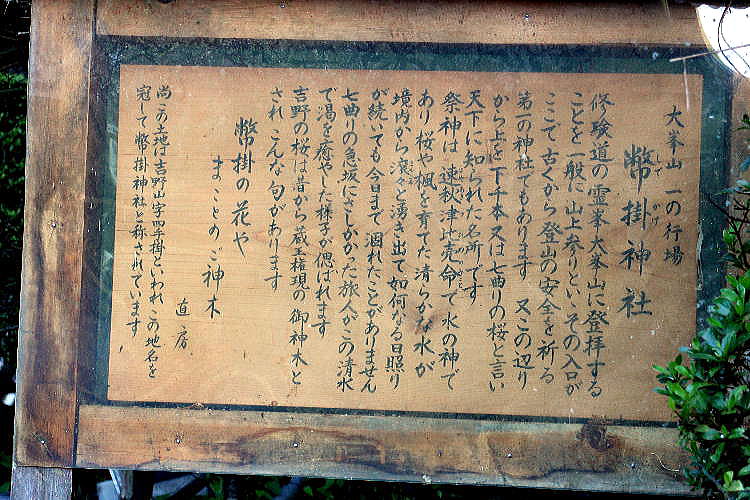 大峯山 一の行場
幣掛神社
しで かけ
修験道の霊峯大峯山に登拝する
ことを一般に山上参りといゝ その入口が
ここで 古くから 登山の安全を祈る
第一の神社でもあります 又この辺り
から上を下千本 又は七曲りの桜と言い
天下に知られた名所です
祭神は 速秋津比売命で 水の神で
あり 桜や楓を育てた清らかな水が
境内から滾々と湧き出て 如何なる日照り
が続いても今日まで涸れたことがありません
七曲りの急坂にさしかかった旅人がこの清水
で渇を癒やした様子が偲ばれます
吉野の桜は昔から蔵王権現の御神木と
され こんな句があります
幣掛の花や
まことのご神木
直房
尚この土地は吉野山字四手掛といわれ この地名を
冠して幣掛神社と称されています